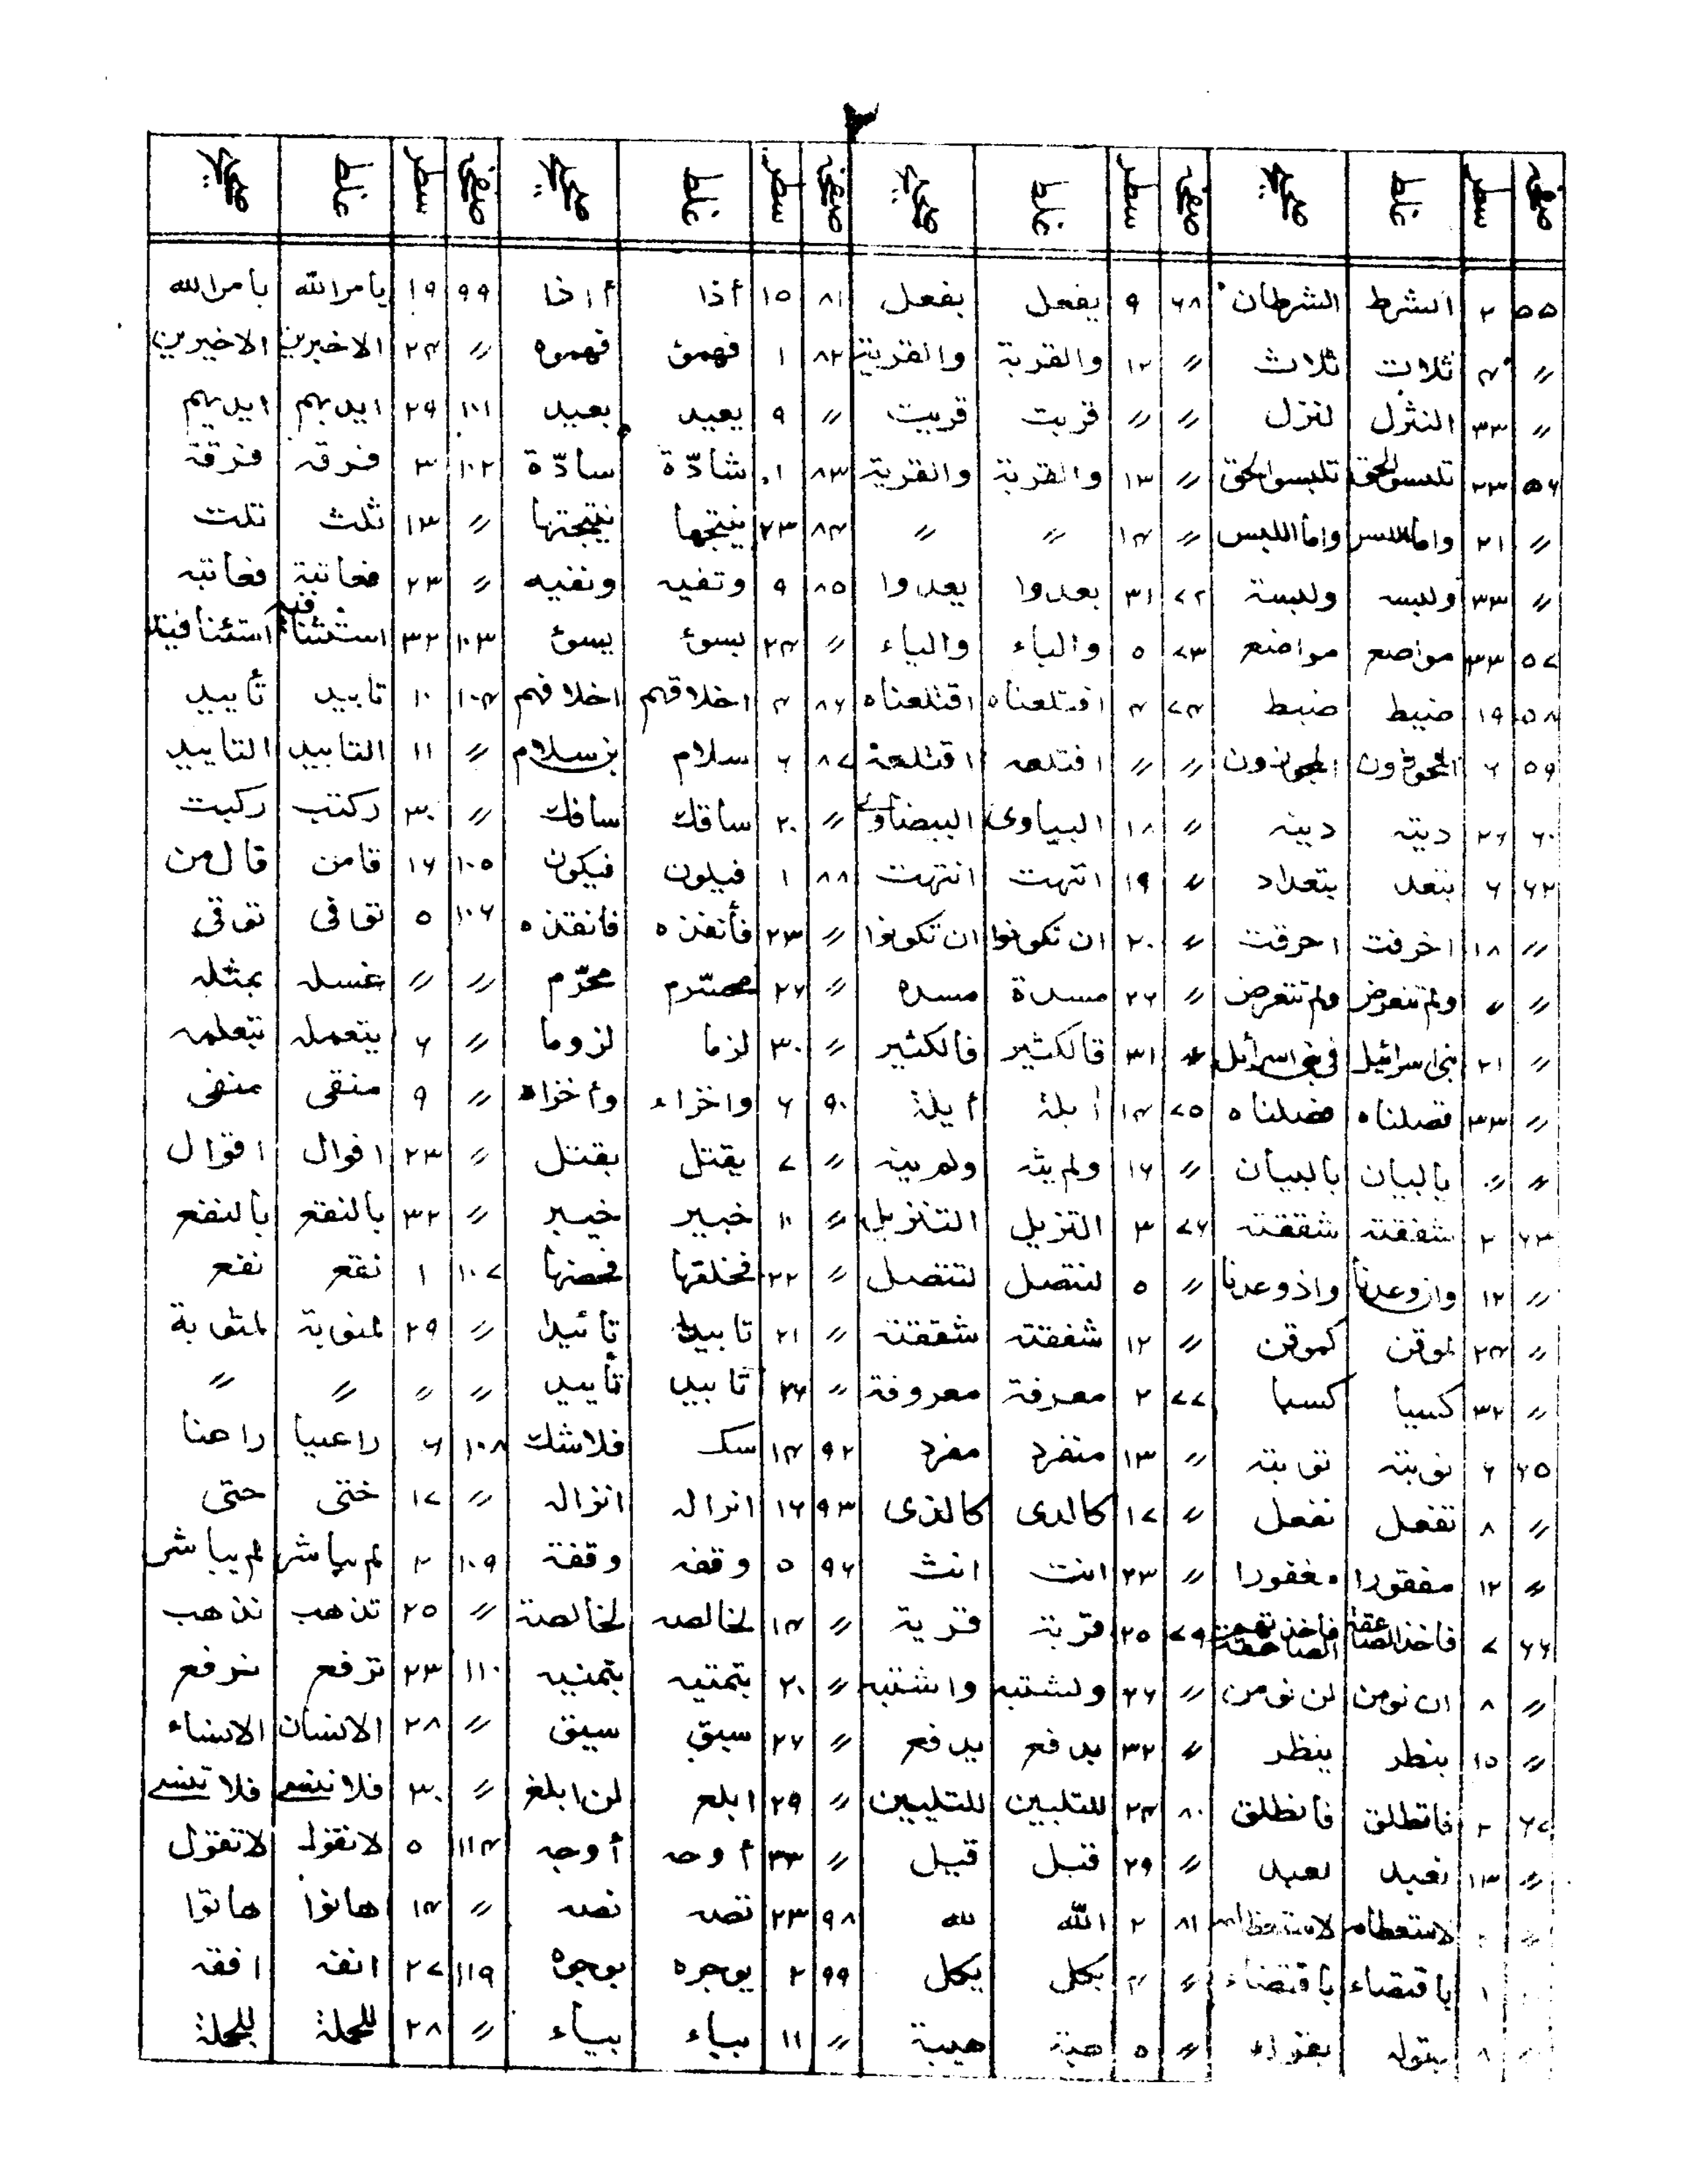 ٢
صفحہ سطر غلط صحیح صفحہ سطر غلط صحیح صفحہ سطر غلط صحیح صفحہ سطر غلط صحیح
٥٥ ٢ الشرط الشرطان ٦٨ ٩ يفعل بفعل ٨١ ١٥ أذا أإذا ٩٩ ١٩ يامر الله بامر الله
〃 ٤ ثلات ثلاث 〃 ١٢ والقربة والقرية ٨٢ ١ فهمئ فهموه 〃 ٢٤ الاخبرين الاخيرين
〃 ٣٣ النزل لنزل 〃 〃 قربت قريت 〃 ٩ يعيد بعيد ١٠١ ٢٩ ايدبهم ايديهم
٥٦ ٢٣ تلبسوالحق تلبسواالحق 〃 ١٣ والقربة والقرية ٨٣ ١٠ شادّة سادّة ١٠٢ ٣ فرقہ فرقة
〃 ٢١ واماللسر واما اللبس 〃 ١٤ 〃 〃 ٨٤ ٢٣ ينتجها نتيجتها 〃 ١٣ ثلث تلت
〃 ٣٣ ولبسه ولبسة ٧٢ ٣١ بعدوا يعدوا ٨٥ ٩ وتفيه ونفيه 〃 ٢٣ فعاتبة فعاتبه
٥٧ ٣٣ مواصع مواضع ٧٣ ٥ والباء والياء 〃 ٢٤ بسوئ يسوئ ١٠٣ ٣٢
٥٨ ١٩ ضيط ضبط ٧٤ ٤ افتلعناه اقتلعناه ٨٦ ٤ اخلاقهم اخلافهم ١٠٤ ١٠ تابيد تأييد
٥٩ ٦ المجوزون 〃 〃 افتلعه اقتلعه ٨٧ ٦ سلام بن سلام 〃 ١١ التابيد التاييد
٦٠ ٢٦ ديته دينه 〃 ١٨ البياوى البيضاوى 〃 ٢٠ ساقك سافك 〃 ٣٠ ركتب ركبت
٦٢ ٦ بتعد بتعداد 〃 ١٩ انتهت 〃 ٨٨ ١ فيلون فيكون ١٠٥ ١٦ قامن قال من
〃 ١٨ اخرفت احرقت 〃 ٢٠ ان تكونوا ان تكونوا 〃 ٢٣ فأنفذه فانقذه ١٠٦ ٥ نقافى توقى
〃 〃 ولم تنعرض ولم تتعرض 〃 ٢٦ مسدة مسده 〃 ٢٧ محرّم 〃 〃 غسله بمثله
〃 ٢١ بنى اسرائيل فى بنى اسرائيل 〃 ٣١ قالكثير فالكثير 〃 ٣٠ لزما لزوما 〃 ٦ يتعمله تتعلمه
〃 ٣٣ فصلناه فضلناه ٧٥ ١٤ أبلة أيلة ٩٠ ٦ واخزاء وأخزاه 〃 ٩ منقى منفى
〃 〃 بالبيان بالبيان 〃 ١٦ ولم يثه ولم يبنه 〃 ٧ يقتل بقتل 〃 ٢٣ افوال اقوال
٦٣ ٢ شفقته شققته ٧٦ ٣ التزيل التنزيل 〃 ١٠ خبير خيبر 〃 ٣٢ بالنقع بالنفع
〃 ١٢ واذوعدنا 〃 ٥ لنتصل لتتصل 〃 ٢٢ فخلقها فحضنها ١٠٧ ١ نقع نفع
〃 ٢٤ لموقن كموقن 〃 ١٢ شفقته شققته 〃 ٢١ تابيدا تأييدا 〃 ٢٩ لمنوبة لمثوبة
〃 ٣٢ كسيا كسبا ٧٧ ٢ معرفة معروفة 〃 ٢٦ تابيد تأييد 〃 〃 〃 〃
٦٥ ٦ نوبته توبته 〃 ١٣ منفرد مفرد ٩٢ ١٤ سك فلاشك ١٠٨ ٦ راعبيا راعنا
〃 ٨ تفعل نفعل 〃 ١٧ كالدى كالذى ٩٣ ١٦ انرالہ انزالہ 〃 ١٧ ختى حتى
〃 ١٢ مفقورا مغفورا 〃 ٢٣ انت انث ٩٦ ٥ وقفه وقفة ١٠٩ ٢ لم يباشر لم يباشر
٦٦ ٧ فاخذ الصاعقة فاخذتهم الصاعقة ٧٩ ٢٥ قربة قرية 〃 ١٤ لخالصه لخالصة 〃 ٢٥ تذهب نذهب
〃 ٨ ان نومن لن نومن 〃 ٢٦ ولشتبه واشتبه 〃 ٢٠ يتمتيه بتمنيه ١١٠ ٢٣ ترفع نرفع
〃 ١٥ بنطر ينظر 〃 ٣٢ بدفع يدفع 〃 ٢٧ سبق سيق 〃 ٢٨ الانسان الانساء
٦٧ ٢ فاتطلق فانطلق ٨٠ ٢٤ للتلبين للتليين 〃 ٢٩ ابلع لن ابلغ 〃 ٣٠ فلا ننسى فلا تنسى
〃 ١٣ نعيد لعبد 〃 ٢٩ قبل قيل 〃 ٣٣ أوحه أوجه ١١٤ ٥ لانقول لاتقول
〃 لاستعطام لاستعظام ٨١ ٢ الله لله ٩٨ ٢٣ تصه نصه 〃 ١٤ هانوا هاتوا
١ باقتصاء باقتضاء 〃 ٤ بكل يكل ٩٩ ٢ يوجره بوجوه ١١٩ ٢٧ انفه افقه
٨ بتوله 〃 ٥ هبة هيبة 〃 ١١ بباء بياء 〃 ٢٨ للجملة